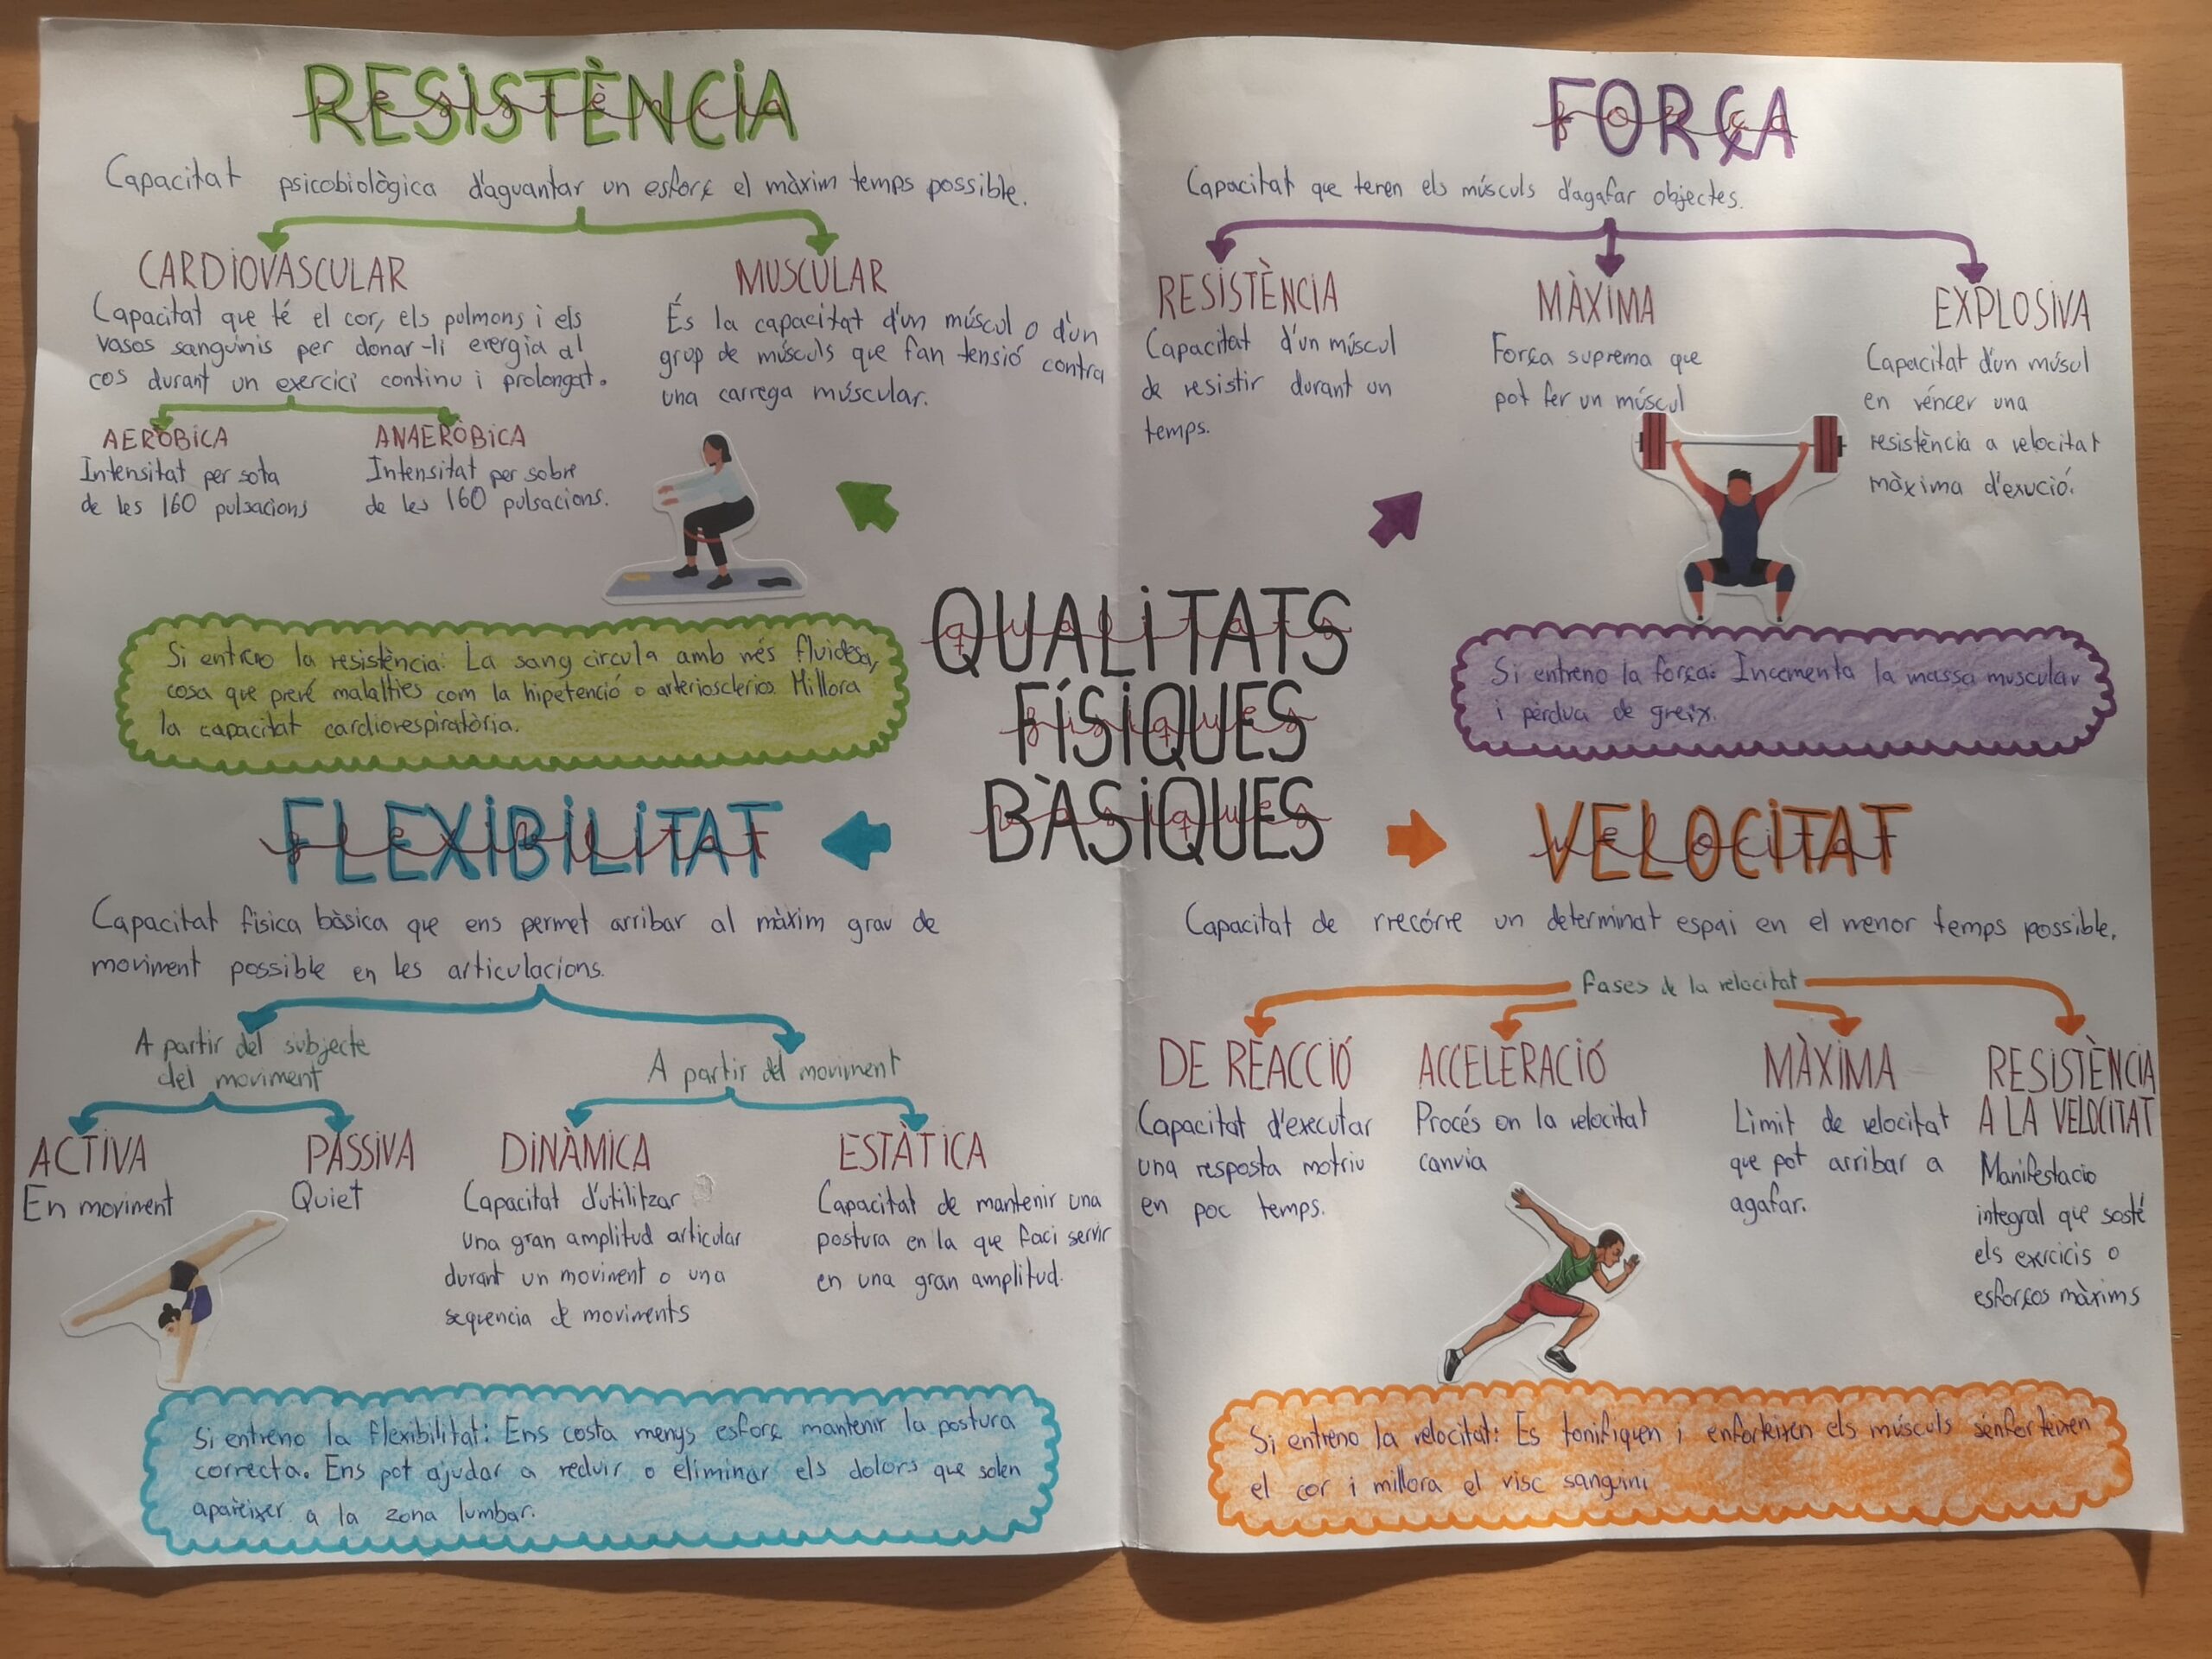 RESISTÈNCIA
Capacitat psicobiològica d'aguantar un esforç el màxim temps possible.
CARDIOVASCULAR
Capacitat que té el cor, els pulmons i els
vasos sanguinis per donar-li energia al
cos durant un exercici continu i prolongat.
AERÒBICA
Intensitat per sota
de les 160 pulsacions
ANAERÒBICA
Intensitat per sobre
de les 160 pulsacions.
MUSCULAR
És la capacitat d'un múscul o d'un
grup de músculs que fan tensió contra
una carrega múscular.
Si entreno la resistència: La sang circula amb més fluidesa,
cosa que preré malalties com la hipetenció o arteriosclerios. Millora
la capacitat cardiorespiratòria.
FORÇA
Capacitat que tenen els músculs d'agafar objectes.
RESISTÈNCIA
Capacitat d'un múscul
de resistir durant un
temps.
MÀXIMA
Força suprema que
pot fer un múscul
EXPLOSIVA
Capacitat d'un músul
en véncer una
resistència a velocitat
màxima d'exució.
Si entreno la força: Incementa la massa muscular
i pèrdua de greix.
QUALITATS
FÍSIQUES
BÀSIQUES
FLEXIBILITAT
Capacitat física bàsica que ens permet arribar al màxim grau de
moviment possible en les articulacions.
A partir del subjecte
del moviment
ACTIVA
En moviment
PASSIVA
Quiet
A partir del moviment
DINÀMICA
Capacitat d'utilitzar
una gran amplitud articular
durant un moviment o una
sequencia de moviments
ESTÀTICA
Capacitat de mantenir una
postura en la que faci servir
en una gran amplitud.
Si entreno la flexibilitat: Ens costa menys esforç mantenir la postura
correcta. Ens pot ajudar a reduir o eliminar els dolors que solen
aparèixer a la zona lumbar.
VELOCITAT
Capacitat de rrecórre un determinat espai en el menor temps possible.
Fases de la velocitat
DE REACCIÓ
Capacitat d'executar
una resposta motriu
en poc temps.
ACCELERACIÓ
Procés on la velocitat
canvia
MÀXIMA
Lìmit de velocitat
que pot arribar a
agafar.
RESISTÈNCIA
A LA VELOCITAT
Manifestacio
integral que sosté
els exrcicis o
esforços màxims
Si entreno la velocitat: Es tonifiquen i enforteixen els músculs s'enforteixen
el cor i millora el visc sanguini